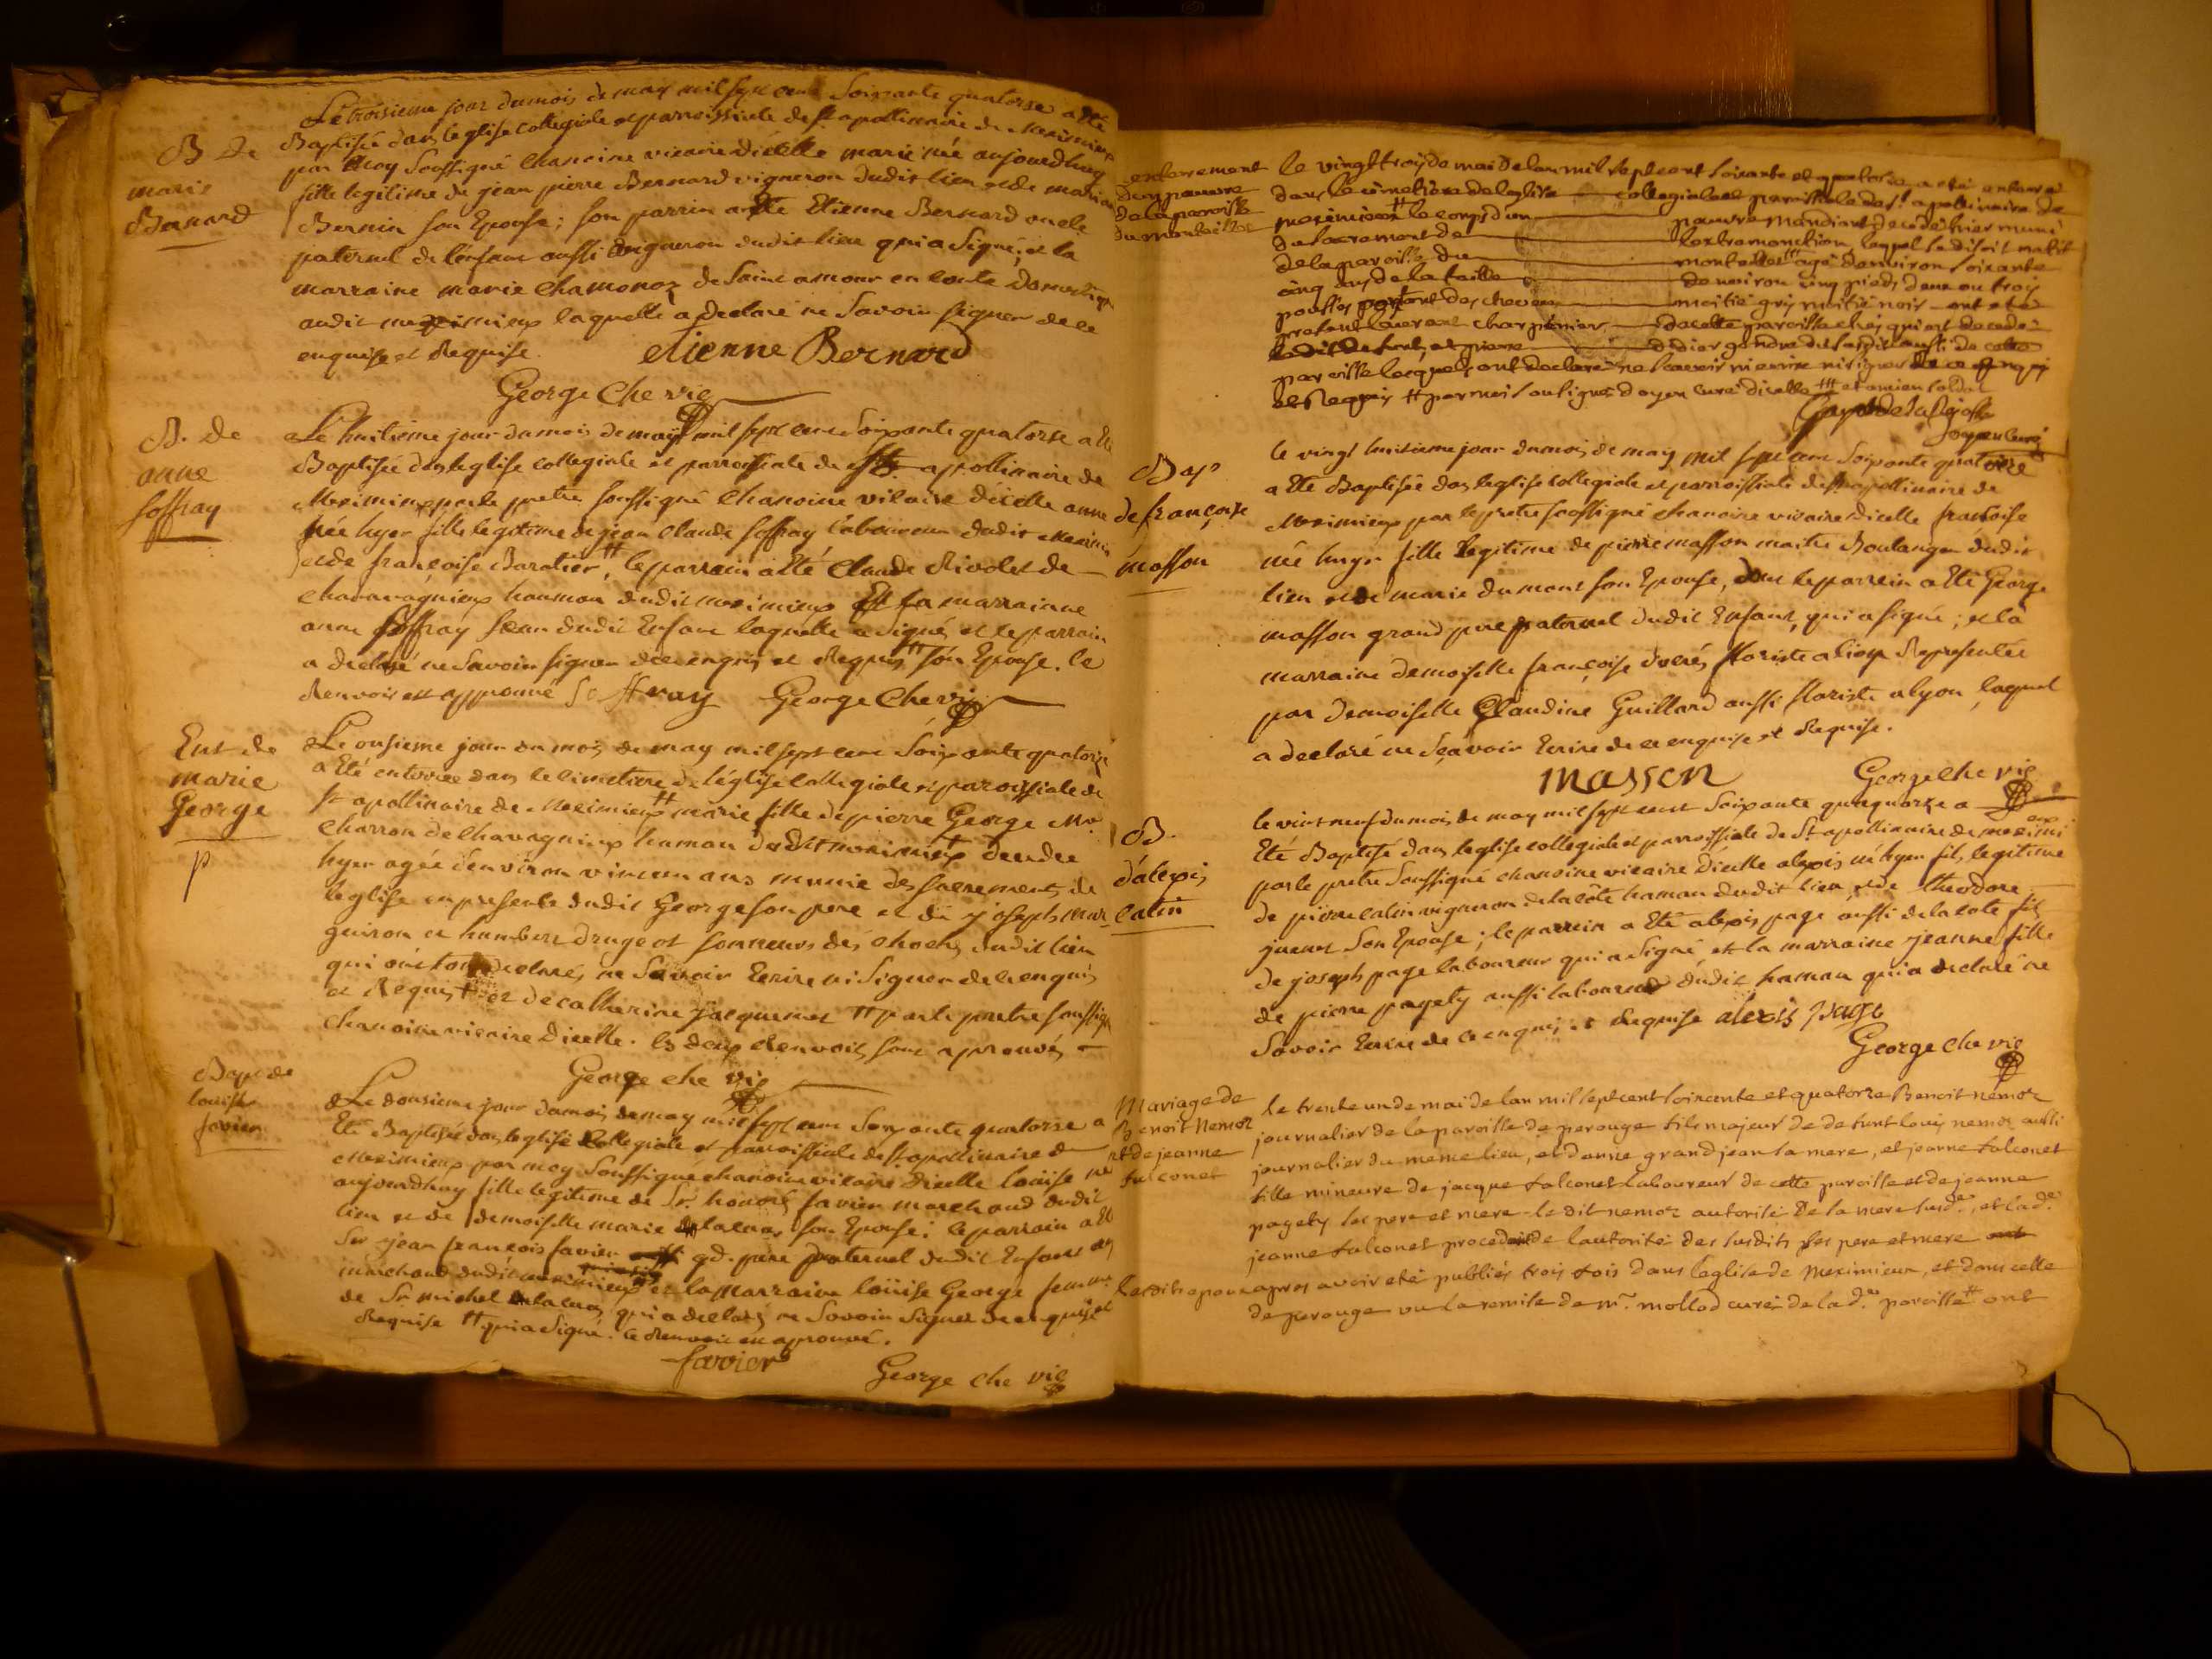 B de
marie
Bernard
Le troisieme jour du mois de may mil sept cent Soixante quatorse a Eté
Baptisée dans leglise collegiale et parroissiale de St apollinaire de Meximieux
par Moy Soussigné Chanoine vicaire dicelle marie née aujourdhuy
fille legitime de jean pierre Bernard vigneron dudit lieu et de
Bernin son Epouse; son parrin a Eté Etienne Bernard oncle
paternel de l'enfant aussi vigneron dudit lieu qui a Signé; et la
marraine marie Chamonoz de Saint amour en conte
audit meximieux laquelle a declaré ne Savoir signer de ce
enquise et Requise.
etienne Bernard
George che vic
B. de
anne
soffray
Le huitieme jour du mois de may mil sept cent Soixante quatorse a Eté
Baptisée dans leglise collegiale et parroissiale de St apollinaire de
Meximieux par le pretre soussigné Chanoine vicaire dicelle anne
née hyer fille legitime de jean Claude soffray laboureur dudit Meximieux
et de françoise Baratier, le parrain a Eté Claude Rivolet de
chavagnieux hamau dudit meximieux Et sa marrainne
anne soffray soeur dudit Enfant laquelle a signé, et le parrain
a declaré ne Savoir signer de ce enquis et Requis # son Epouse. le
Renvoi est approuvé Soffray George Che vic
Ent de
marie
George
p
Le onsieme jour du mois de may mil sept cent Soixante quatorze
a Eté enterrée dans le cimetiere de l'église collegiale et paroissiale de
St apollinaire de Meximieux # marie fille de pierre George Me
charron de Chavagnieux hamau dudit meximieux decedée
hyer agée denviron vincun ans munie des sacrements de
leglise en presence dudit George son pere et de joseph mar
guiron et humbert druget sonneurs des cloches dudit lieu
qui ont tous declarés ne Savoir Ecrire ni Signer de ce enquis
et Requis et de catherine jacquemet # par le pretre soussigné
chanoine vicaire Dicelle. les deux Renvois sont aprouvés
George che vic
Bap. de
louise
favier
Le dousieme jour du mois de may mil sept cent Soixante quatorse a
Eté Baptisée dans leglise collegiale et parroissiale de St apollinaire de
Meximieux par moy Soussigné chanoine vicaire Dicelle louise née
aujourdhuy fille legitime de Sr. honoré favier marchand dudit
lieu et de demoiselle marie son Epouse; le parrain a Eté
Sr jean françois favier gd. pere paternel dudit Enfant
marchand dudit meximieux et la Marraine loüise George femme
de Sr michel qui a declaré ne Savoir Signer de ce enquise et
Requise # qui a signé. le Renvoi est aprouvé.
favier
George che vic
enterement
dun pauvre
de la paroisse
du montellier
le vingt trois de mai de lan mil sept cent soixante et quatorse a eté enterré
dans le cimetiere de leglise collegiale et paroissiale de st apolinaire de
meximieux # le corps d'un pauvre mandiant decedé hier muni
du sacrement de lextremonction, lequel se disoit natif
de la paroisse du montellier agé denviron soixante
cinq ans de la taille denviron cinq pieds deux ou trois
pousses portant des cheveux moitié gris moitié noir ont eté
present charpentier de cette paroisse chés qui est decedé
ledit defunt, et pierre didier gendre dit aussi de cette
paroisse lesquels ont declaré ne scavoir ni ecrire ni signer de ce enquis
et Requis # par moi soussigné doyen curé dicelle ### et ancien soldat
doyen curé
Bap
de françoise
masson
le vingt huitieme jour du mois de may mil sept cent Soixante quatorze
a Eté Baptisée dans leglise collegiale et parroissiale de St apollinaire de
Meximieux par le pretre soussigné chanoine vicaire Dicelle francoise
née hyer fille legitime de pierre masson maitre Boulanger dudit
lieu et de marie dumont son Epouse, dont le parrein a Eté George
masson grand pere paternel dudit Enfant, qui a signé; et la
marraine demoiselle françoise ducrés floriste a lion Representée
par Demoiselle Claudine Guillard aussi floriste a lyon, laquel
a declaré ne Sçavoir Ecrire de ce enquise et Requise.
masson George che vic
B.
d'alexis
catin
le vint neuf du mois de may mil sept cent Soixante quaquorze a
Eté Baptisé dans leglise collegiale et parroissiale de St apollinaire de meximieux
par le pretre Soussigné chanoine vicaire Dicelle alexis né hyer fils legitime
de pierre catin vigneron de la côte hamau dudit lieu et de theodore
juenet Son Epouse; le parrein a Eté alexis page aussi de la cote fils
de joseph page laboureur qui a signé, et la marraine jeanne fille
de pierre pagety aussi laboureur dudit hamau qui a declaré ne
Savoir Ecrire de ce enquis et Requise alexis page
George che vic
Mariage de
Benoit Nemoz
et de jeanne
falconet
le trente un de mai de lan mil sept cent soixante et quatorze Benoit nemoz
journalier de la paroisse de perouge fils majeur de defunt louis nemoz aussi
journalier du meme lieu, et danne grandjean sa mere, et jeanne falconet
fille mineure de jacque falconet laboureur de cette paroisse et de jeanne
pagety ses pere et mere. le dit nemoz autorisé de sa mere susde., et lade.
jeanne falconet procedant de lautorité des susdits ses pere et mere
lesdits epoux apres avoir eté publiés trois fois dans leglise de Meximieux, et dans celle
de perouge vu la remise de mr. mollod curé de lade. paroisse # ont